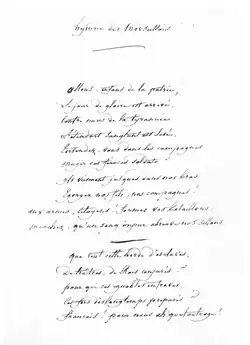 hymne des marseillois
allons enfans de la patrie,
le jour de gloire est arrivé.
contre nous de la tyrannie
l'étendart sanglant est levé.
Entendez vous dans les campagnes
mugir ces féroces soldats?
ils viennent jusques dans vos bras
Egorger vos fils, vos compagnes!
aux armes, citoyens! formez vos bataillons.
marchez, qu'un sang impur abreuve nos sillons
que veut cette horde d'esclaves,
De traîtres, de Rois conjurés?
pour qui ces ignobles entraves,
ces fers dès longtemps préparés?
français! pour nous ah quel outrage!